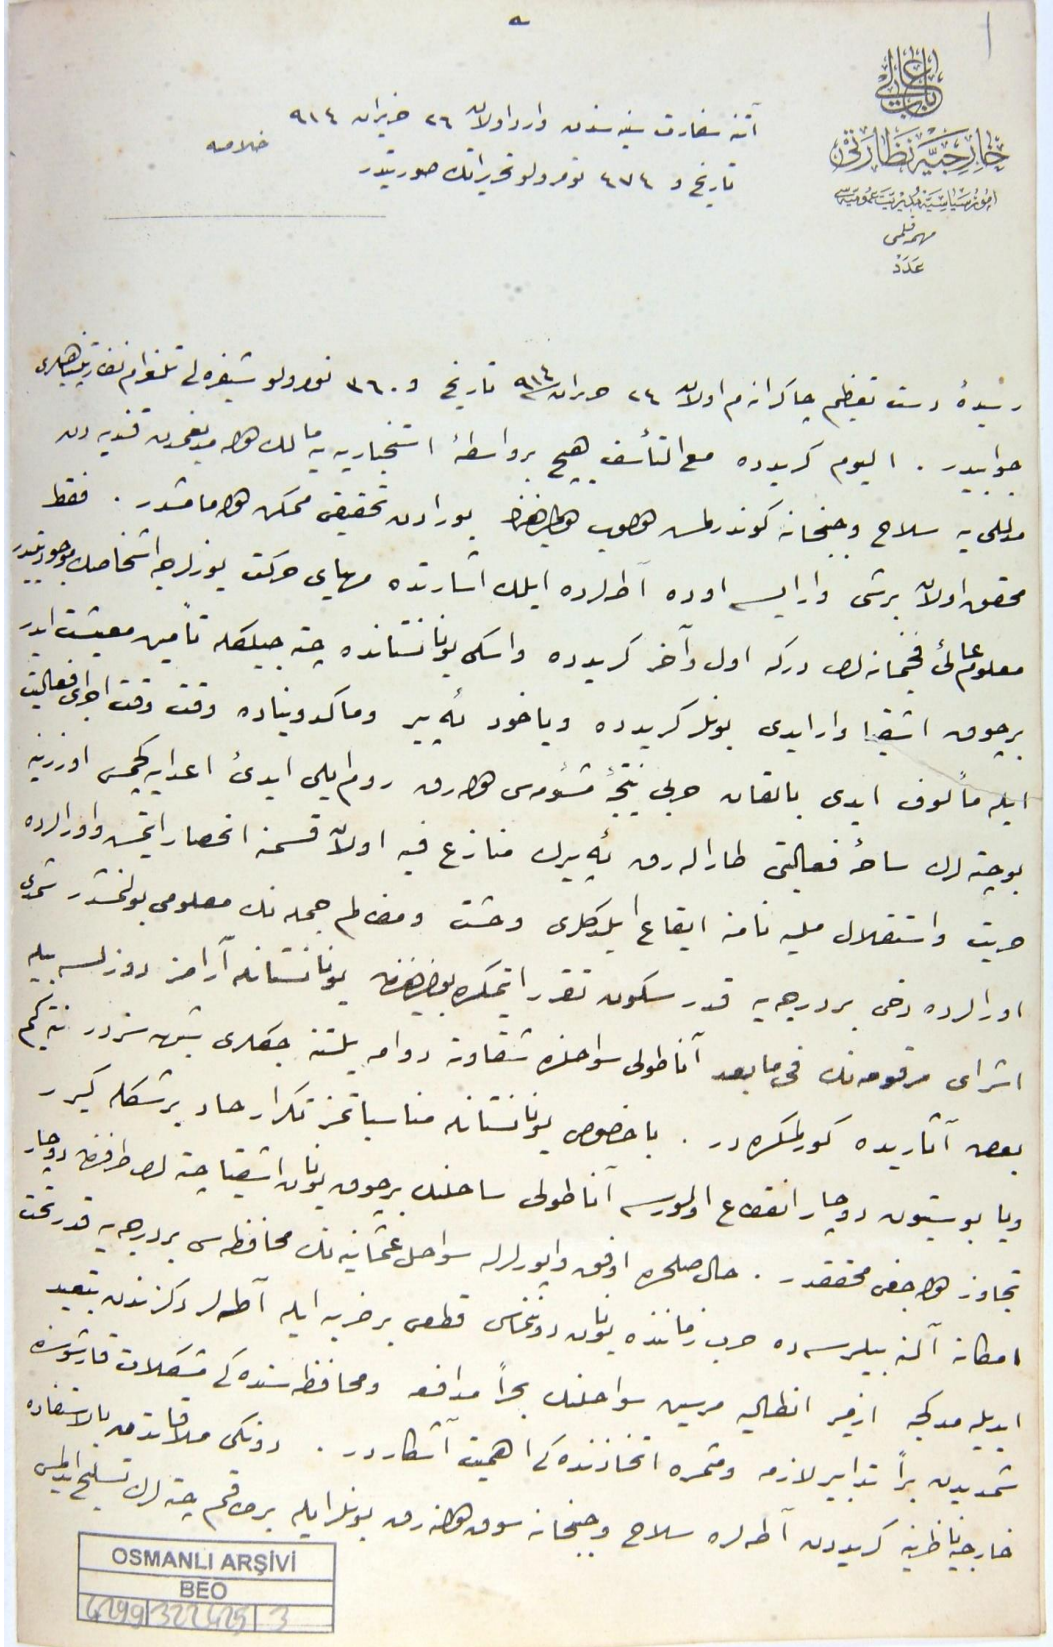 باب عالی
خارجیه نظارتی
امور سیاسیه مدیریت عمومیه سی
مهمه قلمی
عدد
آتنه سفارت سنیه سندن وارد اولان ٢٦ حزیران ٩١٤
تاریخ و ٤٧٤ نومرولو تحریراتك صورتیدر
خلاصه
رسیدۀ دست تعظیم چاكرانه م اولان ٢٤ حزیران ٩١٤ تاریخ و ٣٦٠ نومرولو شفره لی تلغرافنامۀ نظارتپناهیلری
جوابیدر . الیوم كریدده مع التأسف هیچ بر واسطۀ استخباریه یه مالك اوله مدیغمدن قندیه دن
مدللی یه سلاح و جبخانه كوندرلمش اولوب اولمدیغنك بورادن تحقیقی ممكن اوله مامشدر . فقط
محقق اولان برشی وار ایسه اوده آطه لرده ایلك اشارتده مهیای حركت یوزلرجه اشخاصك موجودیتیدر
معلوم عالئ فخیمانه لریدر كه اول و آخر كریدده و اسكی یونانستانده چته جیلكله تأمین معیشت ایدر
برچوق اشقیا وار ایدی بونلر كریدده ویاخود ئه پیر و ماكدونیاده وقت وقت اجرای فعالیت
ایله مألوف ایدی بالقان حربی نتیجۀ مشؤمه سی اوله رق روم ایلی ایدئ اعدایه كچمسی اوزرینه
بو چته لرك ساحۀ فعالیتی طارالەرق ئه پیرك منازع فیه اولان قسمنه انحصار ایتمش و اورالرده
حریت و استقلال ملیه نامنه ایقاع ایلدكلری وحشت و مظالم جمله نك معلومی بولنمشدر شمدی
اورالرده دخی بر درجه یه قدر سكون تقرر ایتمكده بولندیغندن یونانستانله آرامز دوزلسه بیله
اشرای مرقومه نك فی مابعد آناطولی سواحلنده شقاوته دوامه یلتنه جكلری شبهه سزدر نته كیم
بعض آثاریده كورلمكده در . باخصوص یونانستانله مناسباتمز تكرار حاد بر شكله كیرر
ویا بوسبتون دوچار انقطاع اولورسه آناطولی ساحلنك برچوق یونان اشقیا چته لری طرفندن دوچار
تجاوز اوله جغی محققدر . حال صلحده اوفق واپورلرله سواحل عثمانیه نك محافظه سی بر درجه یه قدر تحت
امكانه آلنه بیلیرسه ده حرب زماننده یونان دوننماسی قطعی بر ضربه ایله آطه لر دكزندن تبعید
ایدیلمدكجه ازمیر انطالیه مرسین سواحلنك بحراً مدافعه و محافظه سنده كی مشكلات قارشوسنده
شمدیدن براً تدابیر لازمه و مثمره اتخاذنده كی اهمیت آشكاردر . دونكی ملاقاتمدن بالاستفاده
خارجیه ناظرینه كریددن آطه لره سلاح و جبخانه سوق اولنه رق بونلر ایله بر طاقم چته لرك تسلیح ایدلمسی
OSMANLI ARŞİVİ
BEO
4299 322425 3